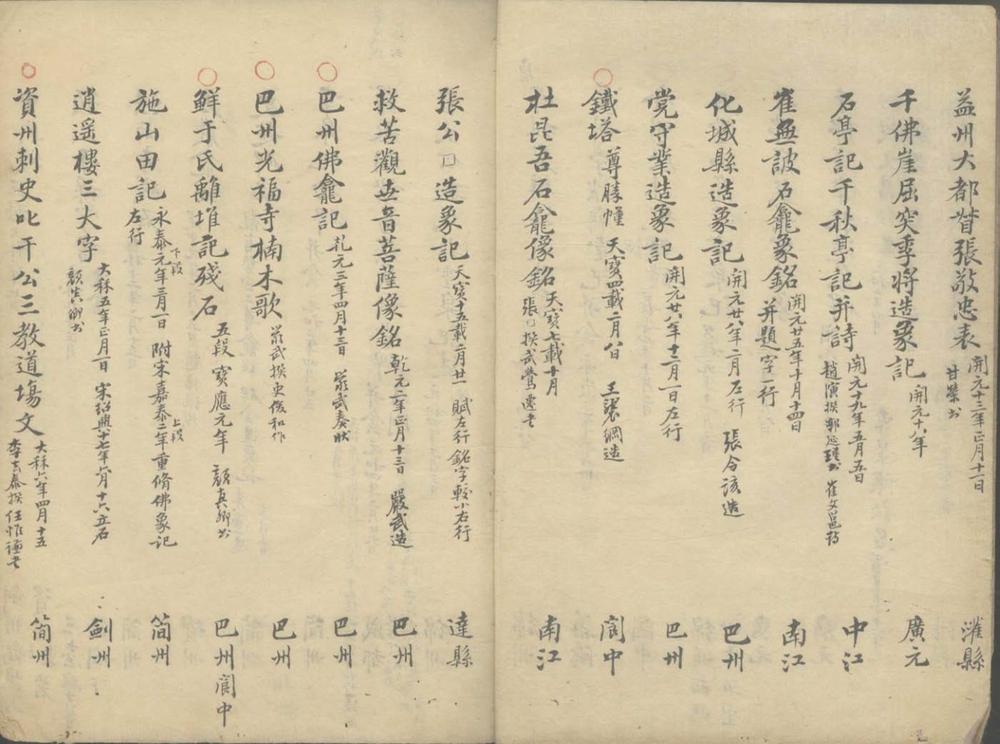 益州大都督張敬忠表 開元十三年正月十一日 甘榮書 灌縣
千佛崖屈突季將造象記 開元十八年 廣元
石亭記千秋亭記并詩 開元十九年五月五日 趙演撰 崔文邕 中江
崔無詖石龕象銘 開元廿五年十月十四日 并題字一行 南江
化城縣造象記 開元廿八年二月左行 張令該造 巴州
党守業造象記 開元廿八年十二月一日左行 巴州
鐵塔尊勝幢 天寶四載二月八日 王襲綱造 閬中
杜昆吾石龕像銘 天寶七載十月 張□撰 南江
張公□造象記 天寶十五載 月廿一 賦左行 銘字較小右行 達縣
救苦觀世音菩薩像銘 乾元二年正月十三日 嚴武造 巴州
巴州佛龕記 乾元三年四月十三日 嚴武奏狀 巴州
巴州光福寺楠木歌 嚴武撰史俊和作 巴州
鮮于氏離堆記殘石 五段 寶應元年 顏真卿書 巴州閬中
施山田記 下段 永泰元年三月一日 左行 上段 附宋嘉泰二年重脩佛象記 簡州
逍遥樓三大字 大秝五年正月一日 顏真卿書 宋紹興十七年六月十六立石 劍州
資州刺史叱干公三教道場文 大秝六年四月十五 李去泰撰任惟謙書 簡州